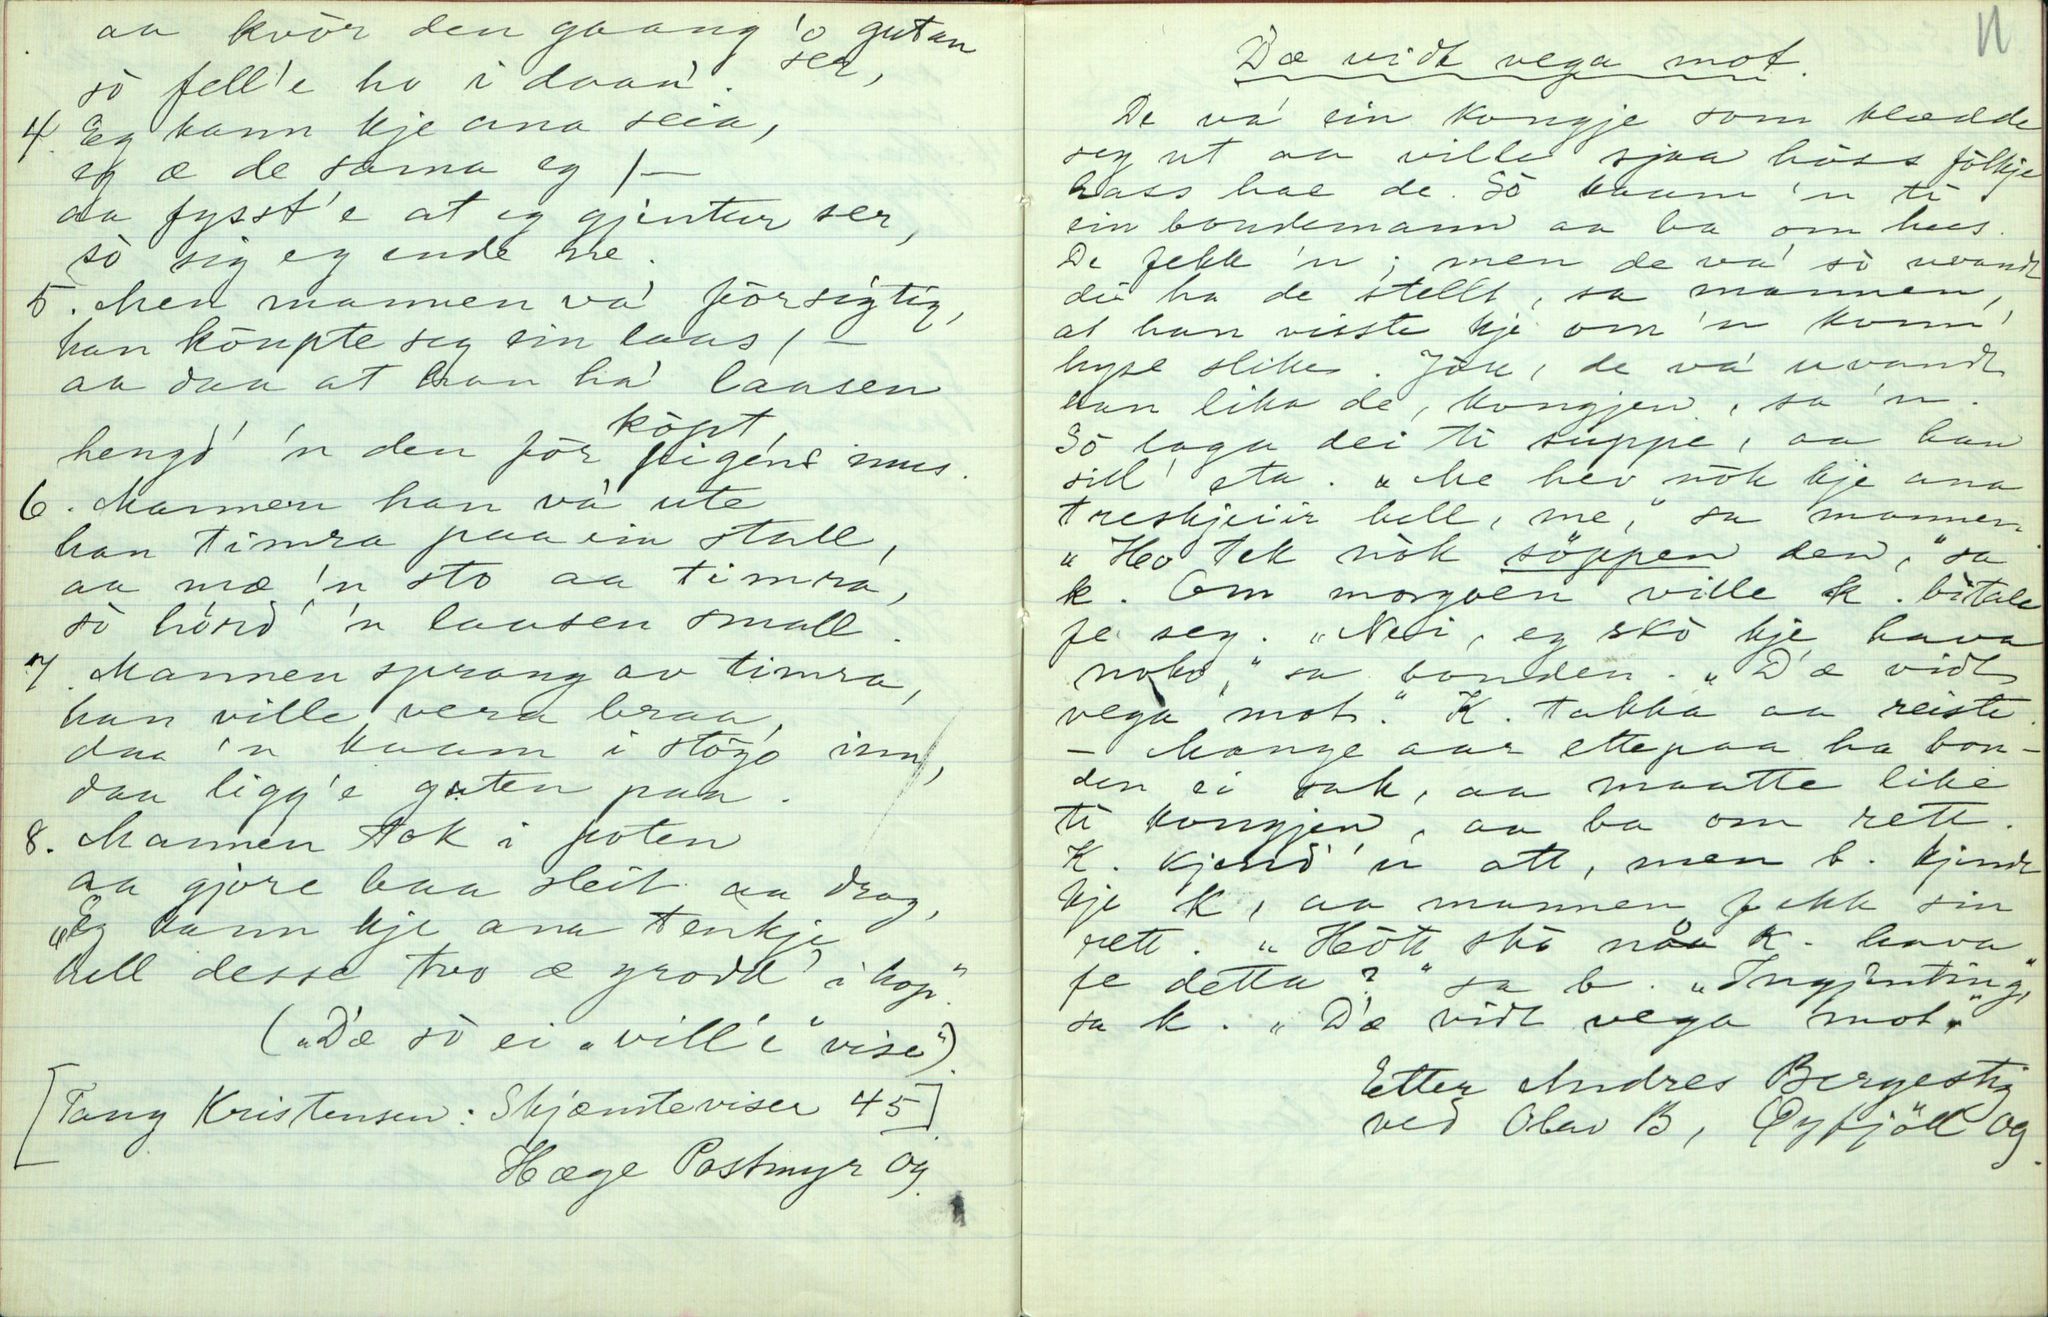 aa kvòr den gaang 'o gutan
ser,
sò fell'e ho i daaa'.
4. Eg kann kje ana seia,
eg æ de sama eg, –
aa fysst'e at eg gjentur ser,
sò sig eg ende ne.
5. Men mannen va' fòrsigtig,
han kòupte seg ein laas, –
aa daa at han ha' laasen
kòpt,
hengd' 'n den fòr pigens mus.
6. Mannen han va' ute
han timra paa ein stall,
aa mæ 'n sto aa timra,
sò hòrd' 'n laasen small.
7. Mannen sprang av timra,
han ville vera braa,
daa 'n kaam i stògo inn,
daa ligg'e guten paa.
8. Mannen tok i poten
aa gjore baa sleit aa drog,
"Eg kann kje ana tenkje
hell desse two æ grodd' i hop."
("D'æ sò ei "vill'e" vise")
[Tang Kristensen: Skjæmteviser 45]
Hæge Postmyr og.
11
Dæ vidt vega mot.
De va' ein kongje som klædde
seg ut aa ville sjaa hòss fòlkje
hass hae de. Sò kaam 'n ti
ein bondemann aa ba om hus.
De fekk 'n; men de va' sò uvandt
dei ha de stellt, sa mannen,
at han visste kje om 'n kunn'
hyse slike. Jòu, de va' uvandt
han lika de, kongjen, sa 'n.
Sò laga dei ti suppe, aa han
sill' eta. "Me hev nòk kje ana
treskjeiir hell, me," sa mannen.
"Ho tek nòk sòppen den," sa
k. Om morgoen ville k. bitale
fe seg. "Nei, eg skò kje hava
noko," sa bonden. "D'æ vidt
vega mot." K. takka aa reiste.
– Mange aar ettepaa ha bon-
den ei sak, aa maatte like
ti kongjen, aa ba om rett.
K. kjend' 'n att, men b. kjende
kje K, aa mannen fekk sin
rett. "Hòtt skò nåa K. hava
fe detta?" sa b. "Ingjenting,"
sa k. "D'æ vidt vega mot."
Etter Andres Bergestig
ved Olav B, Øyfjöll og.